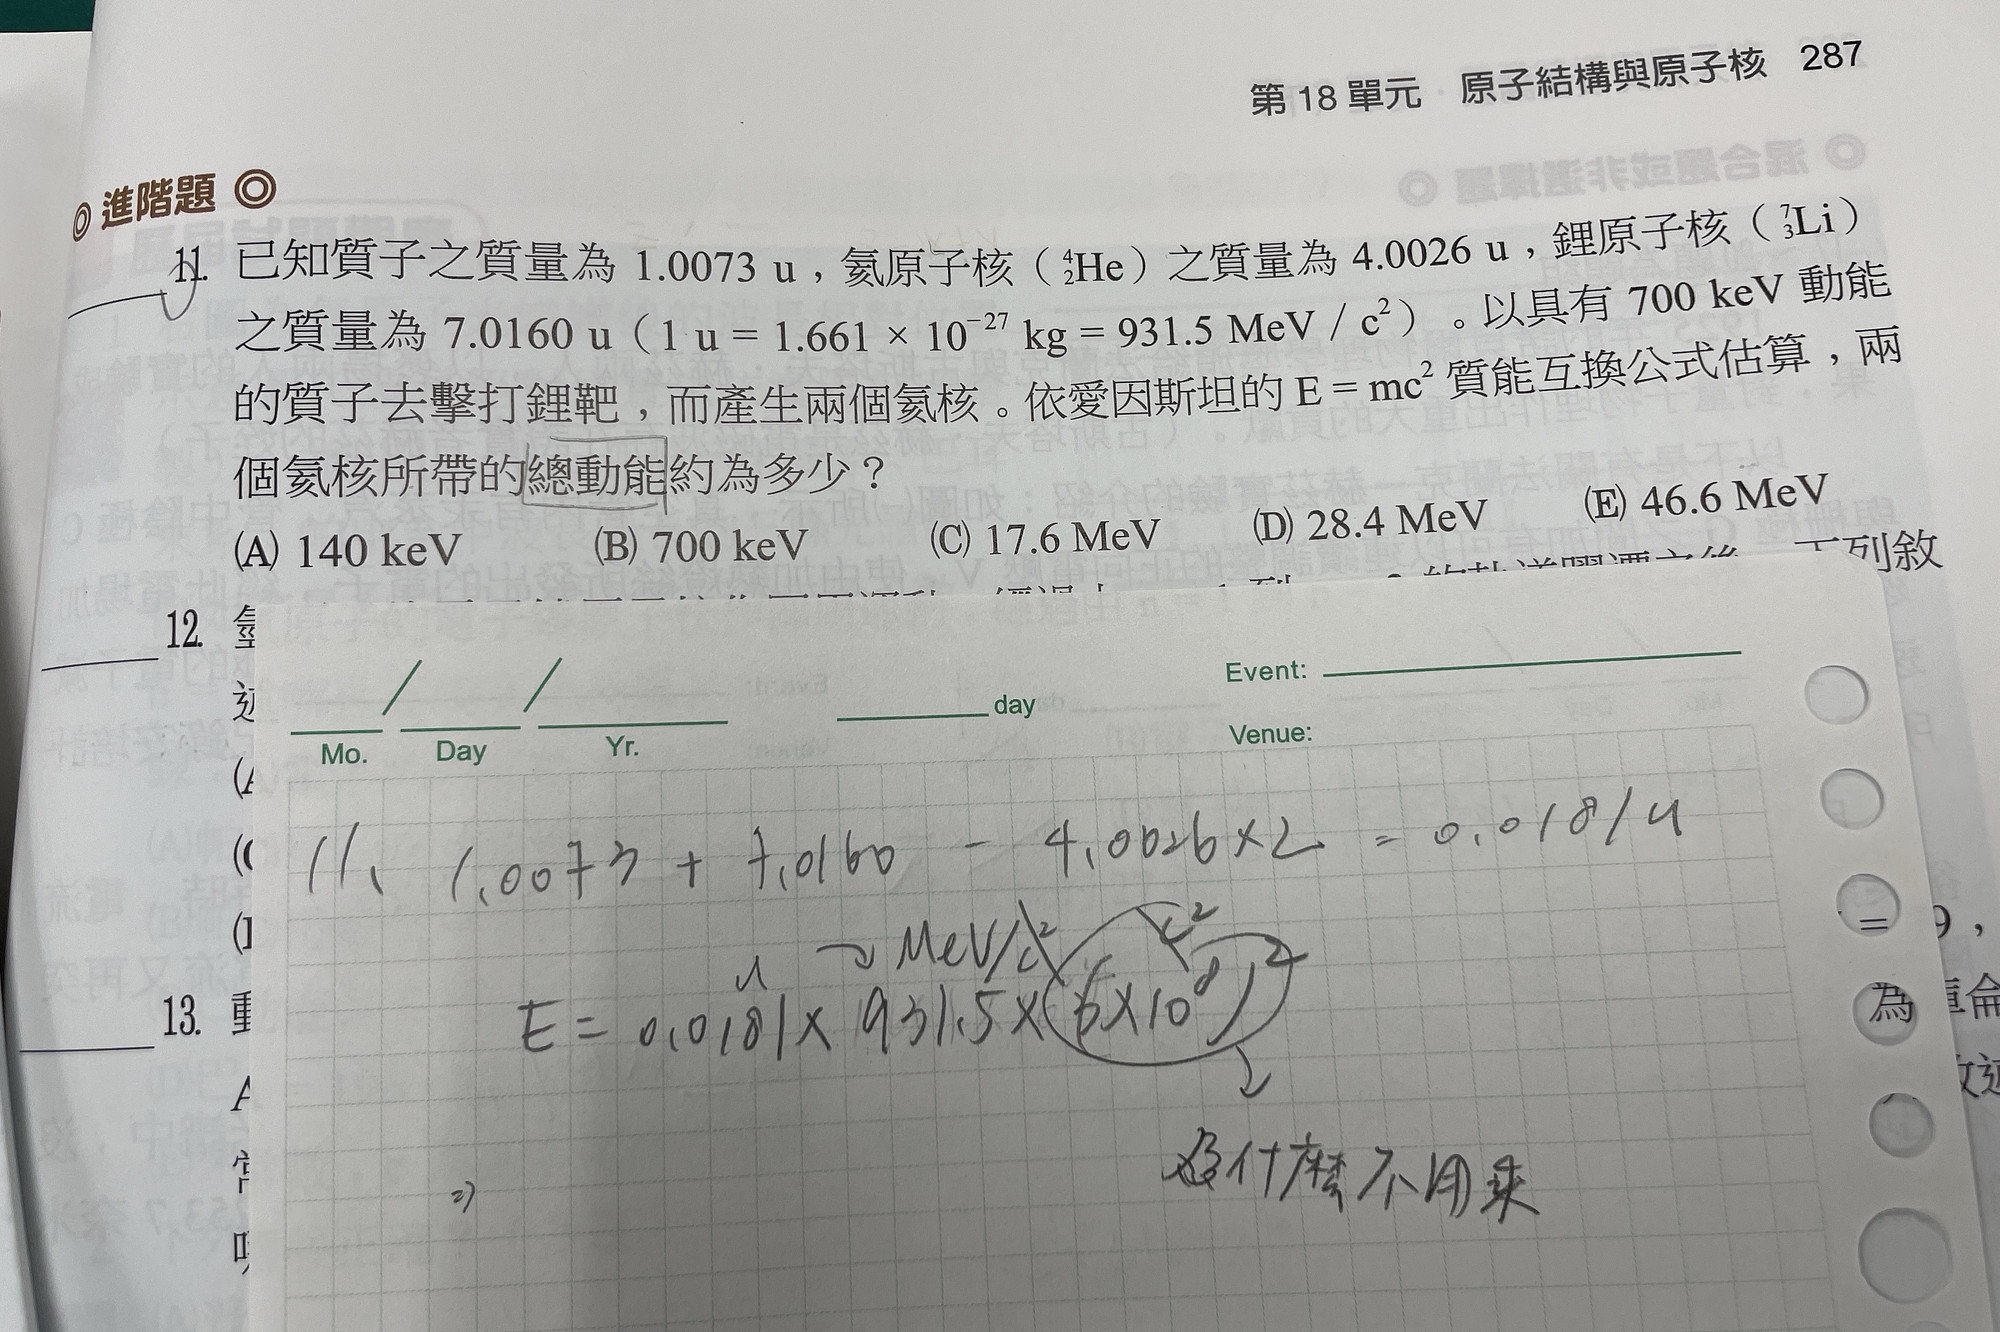 第 18 單元 原子結構與原子核 287
◎ 進階題 ◎
11. 已知質子之質量為 1.0073 u，氦原子核（⁴₂He）之質量為 4.0026 u，鋰原子核（⁷₃Li）
之質量為 7.0160 u（1 u = 1.661 × 10⁻²⁷ kg = 931.5 MeV / c²）。以具有 700 keV 動能
的質子去擊打鋰靶，而產生兩個氦核。依愛因斯坦的 E = mc² 質能互換公式估算，兩
個氦核所帶的總動能約為多少？
(A) 140 keV (B) 700 keV (C) 17.6 MeV (D) 28.4 MeV (E) 46.6 MeV
下列敘
12. 氫
述
Mo. / Day / Yr. day Event:
Venue:
11. 1.0073 + 7.0160 - 4.0026×2 = 0.0181 u
u → MeV/c² c²
E = 0.0181 × 931.5 × ( ×10⁸)²
為什麼不用乘
= 9，
為 庫侖
13. 動